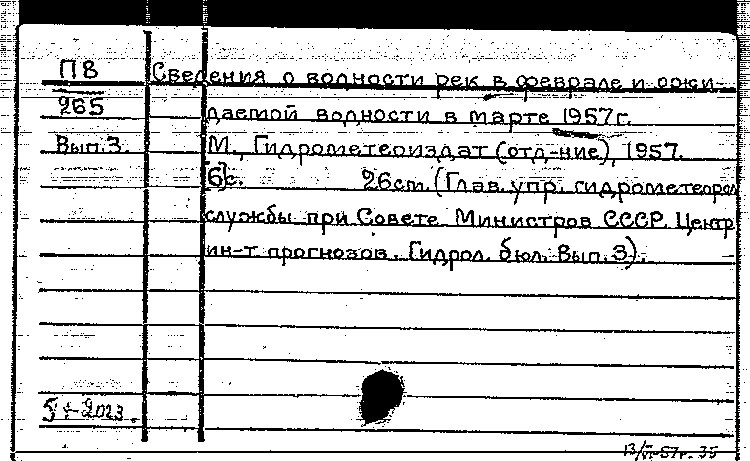 ПВ
265
Вып.3.
Сведения о водности рек в феврале и ожи-
даемой водности в марте 1957г.
М., Гидрометеоиздат (отд-ние), 1957.
[6]с. 26см. (Глав. упр. гидрометеорол
службы при Совете Министров СССР. Центр
ин-т прогнозов. Гидрол. бюл. Вып. 3).
57г. 35